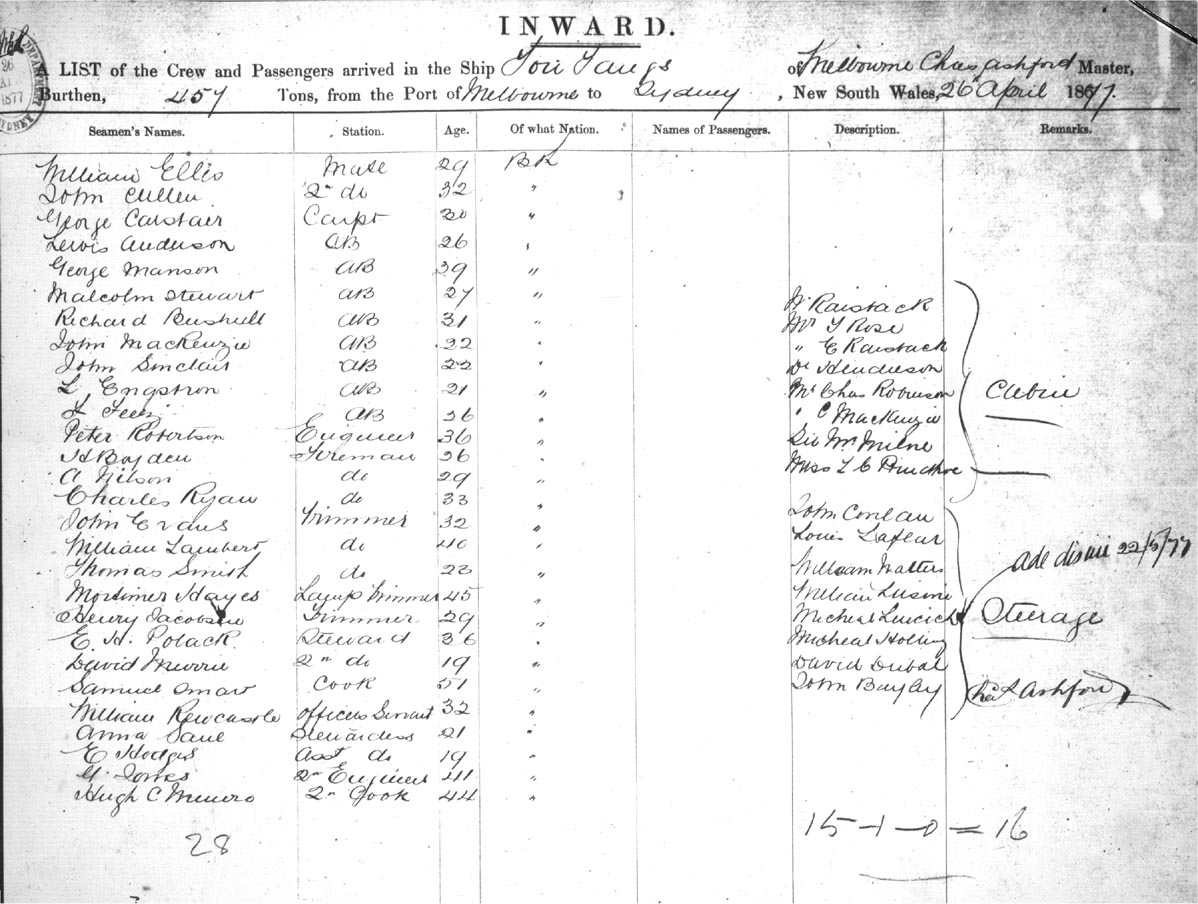 INWARD.
A LIST of the Crew and Passengers arrived in the Ship You Yangs of Melbourne Chas Ashford Master,
Burthen, 457 Tons, from the Port of Melbourne to Sydney, New South Wales, 26 April 1877.
Seamen's Names. Station. Age. Of what Nation. Names of Passengers. Description. Remarks.
William Ellis Mate 29 Bh
John Cullen 2nd do 32 "
George Carstaer Carpt "
Lewis Anderson AB 26 "
George Manson AB 39 "
Malcolm Stewart AB 27 "
W Raistack
Richard Bushell AB 31 "
Mr T Rose
John MacKenzie AB 32 "
" E Raistack
John Sinclair AB 22 "
Dr Henderson
L Engstron AB 21 "
Mr Chas Robinson
Cabin
AB 36 "
" C MacKenzie
Peter Robertson Engineer 36 "
Mr Milne
H Boyden Fireman 26 "
Miss L C
A Nilson do 29 "
Charles Ryan do 33 "
John Evans Trimmer 32 "
John Conlan
William Lambert do 40 "
Louis Lafleur
22/5/77
Thomas Smith do 23 "
William Walters
Mortimer Hayes Lamp Trimmer 45 "
William
Henry Jacobsen Trimmer 29 "
Micheal
Steerage
E. H. Polack Steward 36 "
Micheal
David Munro 2nd do 19 "
David Dubal
Samuel Omar Cook 51 "
John Bayley
Chas Ashford
William Newcastle Officers Servant 32 "
Anna Stewardess 21 "
E Hodges Asst do 19 "
G. Jones 2nd Engineer 41 "
Hugh C Munro 2nd Cook 44 "
28
15-1-0=16